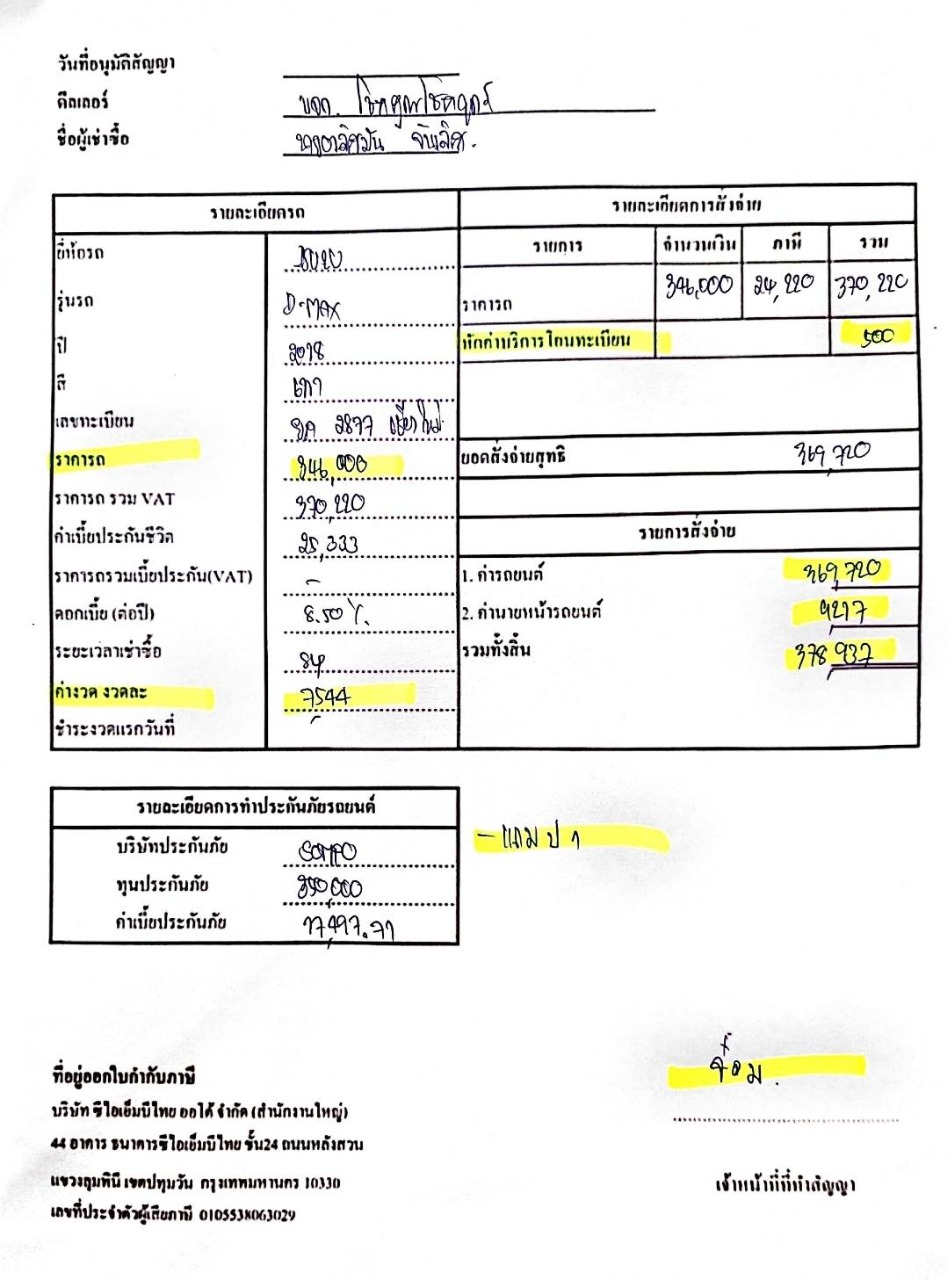 วันที่อนุมัติสัญญา
ดีลเลอร์ หจก. โชคคูณโชคฤกษ์
ชื่อผู้เช่าซื้อ
รายละเอียดรถ
ยี่ห้อรถ ISUZU
รุ่นรถ D-MAX
ปี 2018
สี เทา
เลขทะเบียน 2877 เชียงใหม่
ราคารถ 346,000
ราคารถ รวม VAT 370,220
ค่าเบี้ยประกันชีวิต 25,333
ราคารถรวมเบี้ยประกัน(VAT) -
ดอกเบี้ย (ต่อปี) 8.50 %
ระยะเวลาเช่าซื้อ 84
ค่างวด งวดละ 7544
ชำระงวดแรกวันที่
รายละเอียดการสั่งจ่าย
รายการ จำนวนเงิน ภาษี รวม
ราคารถ 346,000 24,220 370,220
หักค่าบริการโอนทะเบียน 500
ยอดสั่งจ่ายสุทธิ 369,720
รายการสั่งจ่าย
1. ค่ารถยนต์ 369,720
2. ค่านายหน้ารถยนต์ 9217
รวมทั้งสิ้น 378,937
รายละเอียดการทำประกันภัยรถยนต์
บริษัทประกันภัย SOMPO
ทุนประกันภัย 350,000
ค่าเบี้ยประกันภัย
- แถม ป 1
ที่อยู่ออกใบกำกับภาษี
บริษัท ซีไอเอ็มบีไทย ออโต้ จำกัด (สำนักงานใหญ่)
44 อาคาร ธนาคารซีไอเอ็มบีไทย ชั้น24 ถนนหลังสวน
แขวงลุมพินี เขตปทุมวัน กรุงเทพมหานคร 10330
เลขที่ประจำตัวผู้เสียภาษี 0105538063029
เจ้าหน้าที่ที่ทำสัญญา